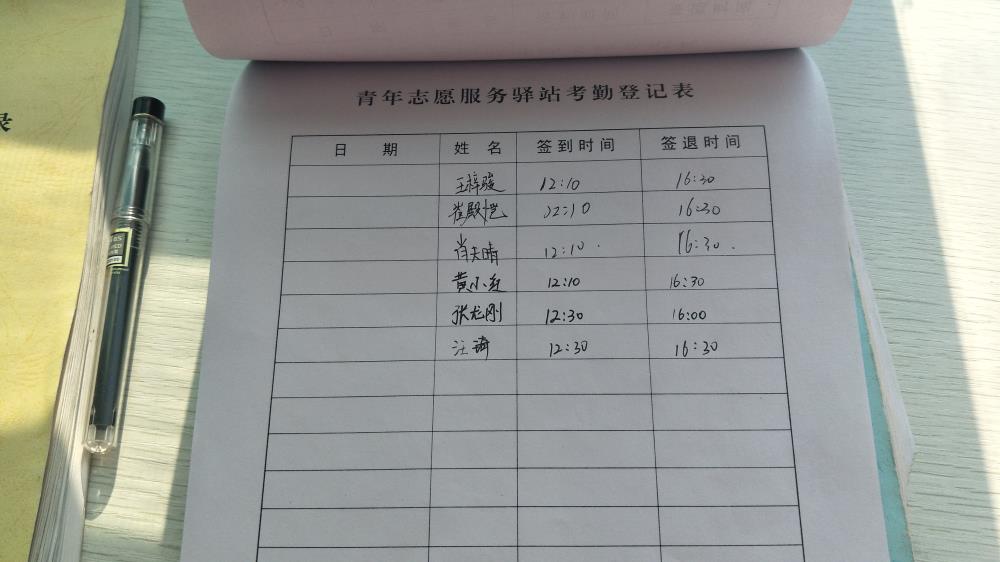 青年志愿服务驿站考勤登记表
日 期 姓 名 签到时间 签退时间
王梓骏 12:10 16:30
崔殿恺 12:10 16:30
肖天晴 12:10 16:30
黄小红 12:10 16:30
张龙刚 12:30 16:00
汪琦 12:30 16:30
录